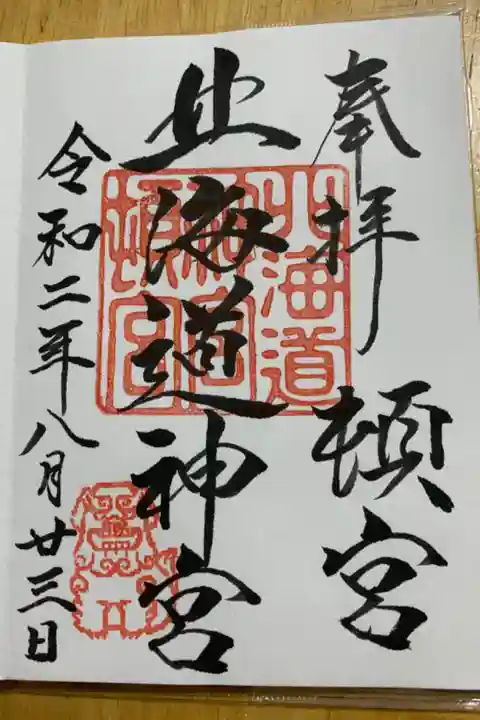 奉拝 頓宮
北海道神宮
令和二年八月廿三日
北海道
神宮
頓宮